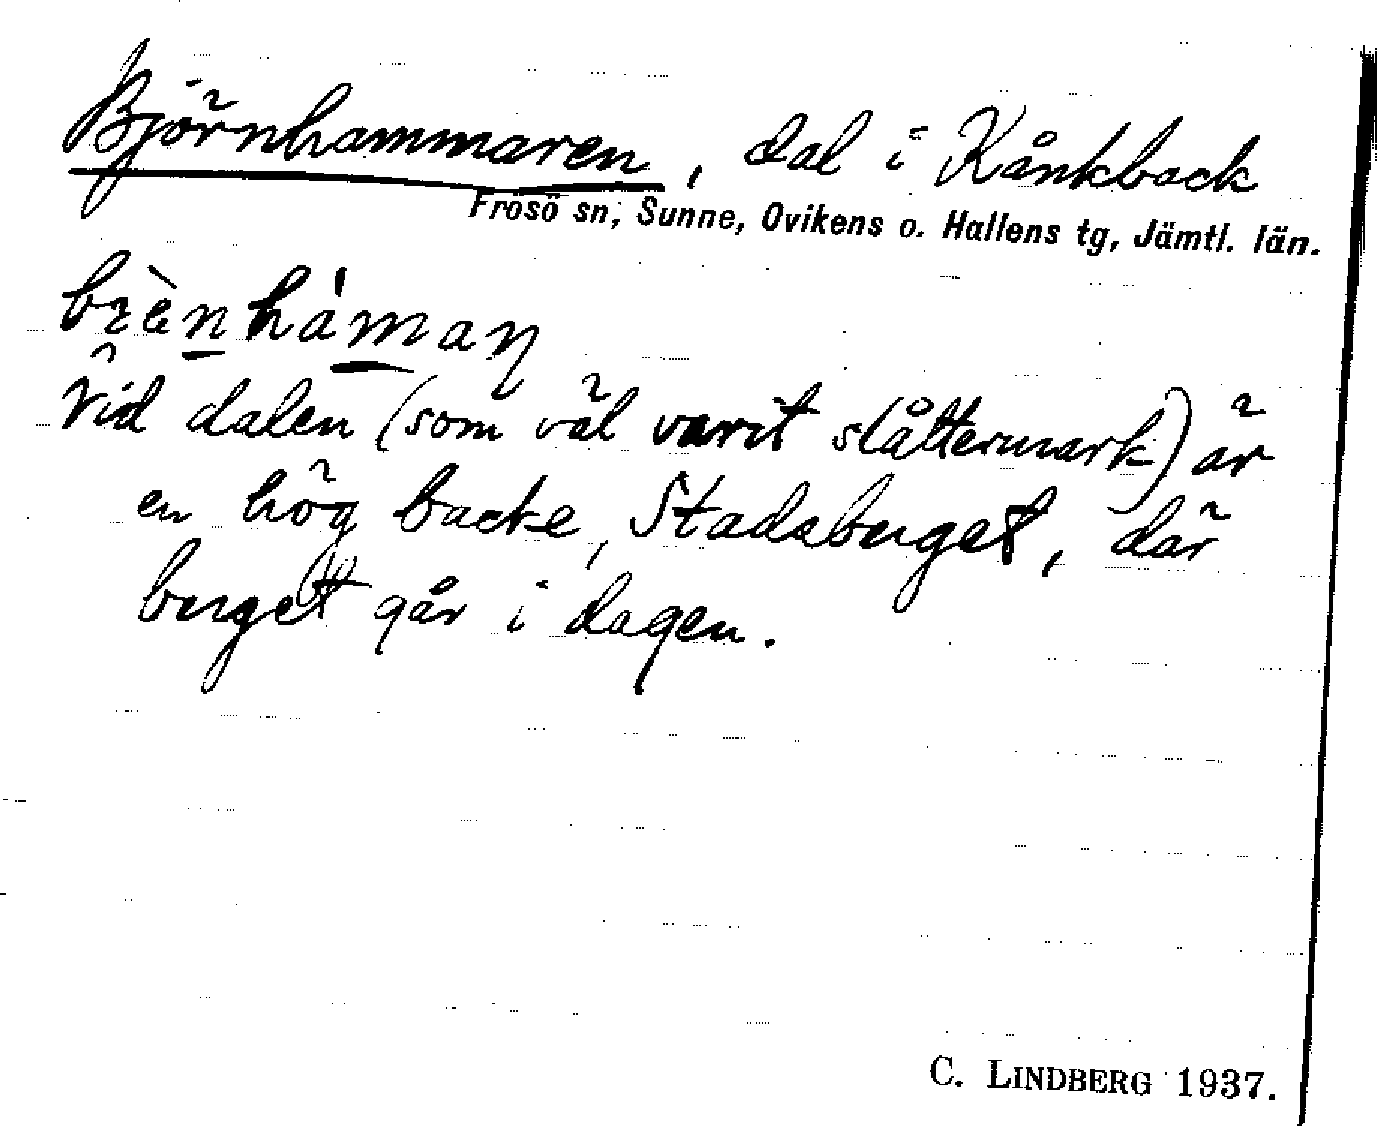 Björnhammaren, dal i Kånkback
Frösö sn, Sunne, Ovikens o. Hallens tg, Jämtl. län.
Vid dalen (som väl varit slåttermark) är
en hög backe, Stadsberget, där
berget går i dagen.
C. LINDBERG 1937.